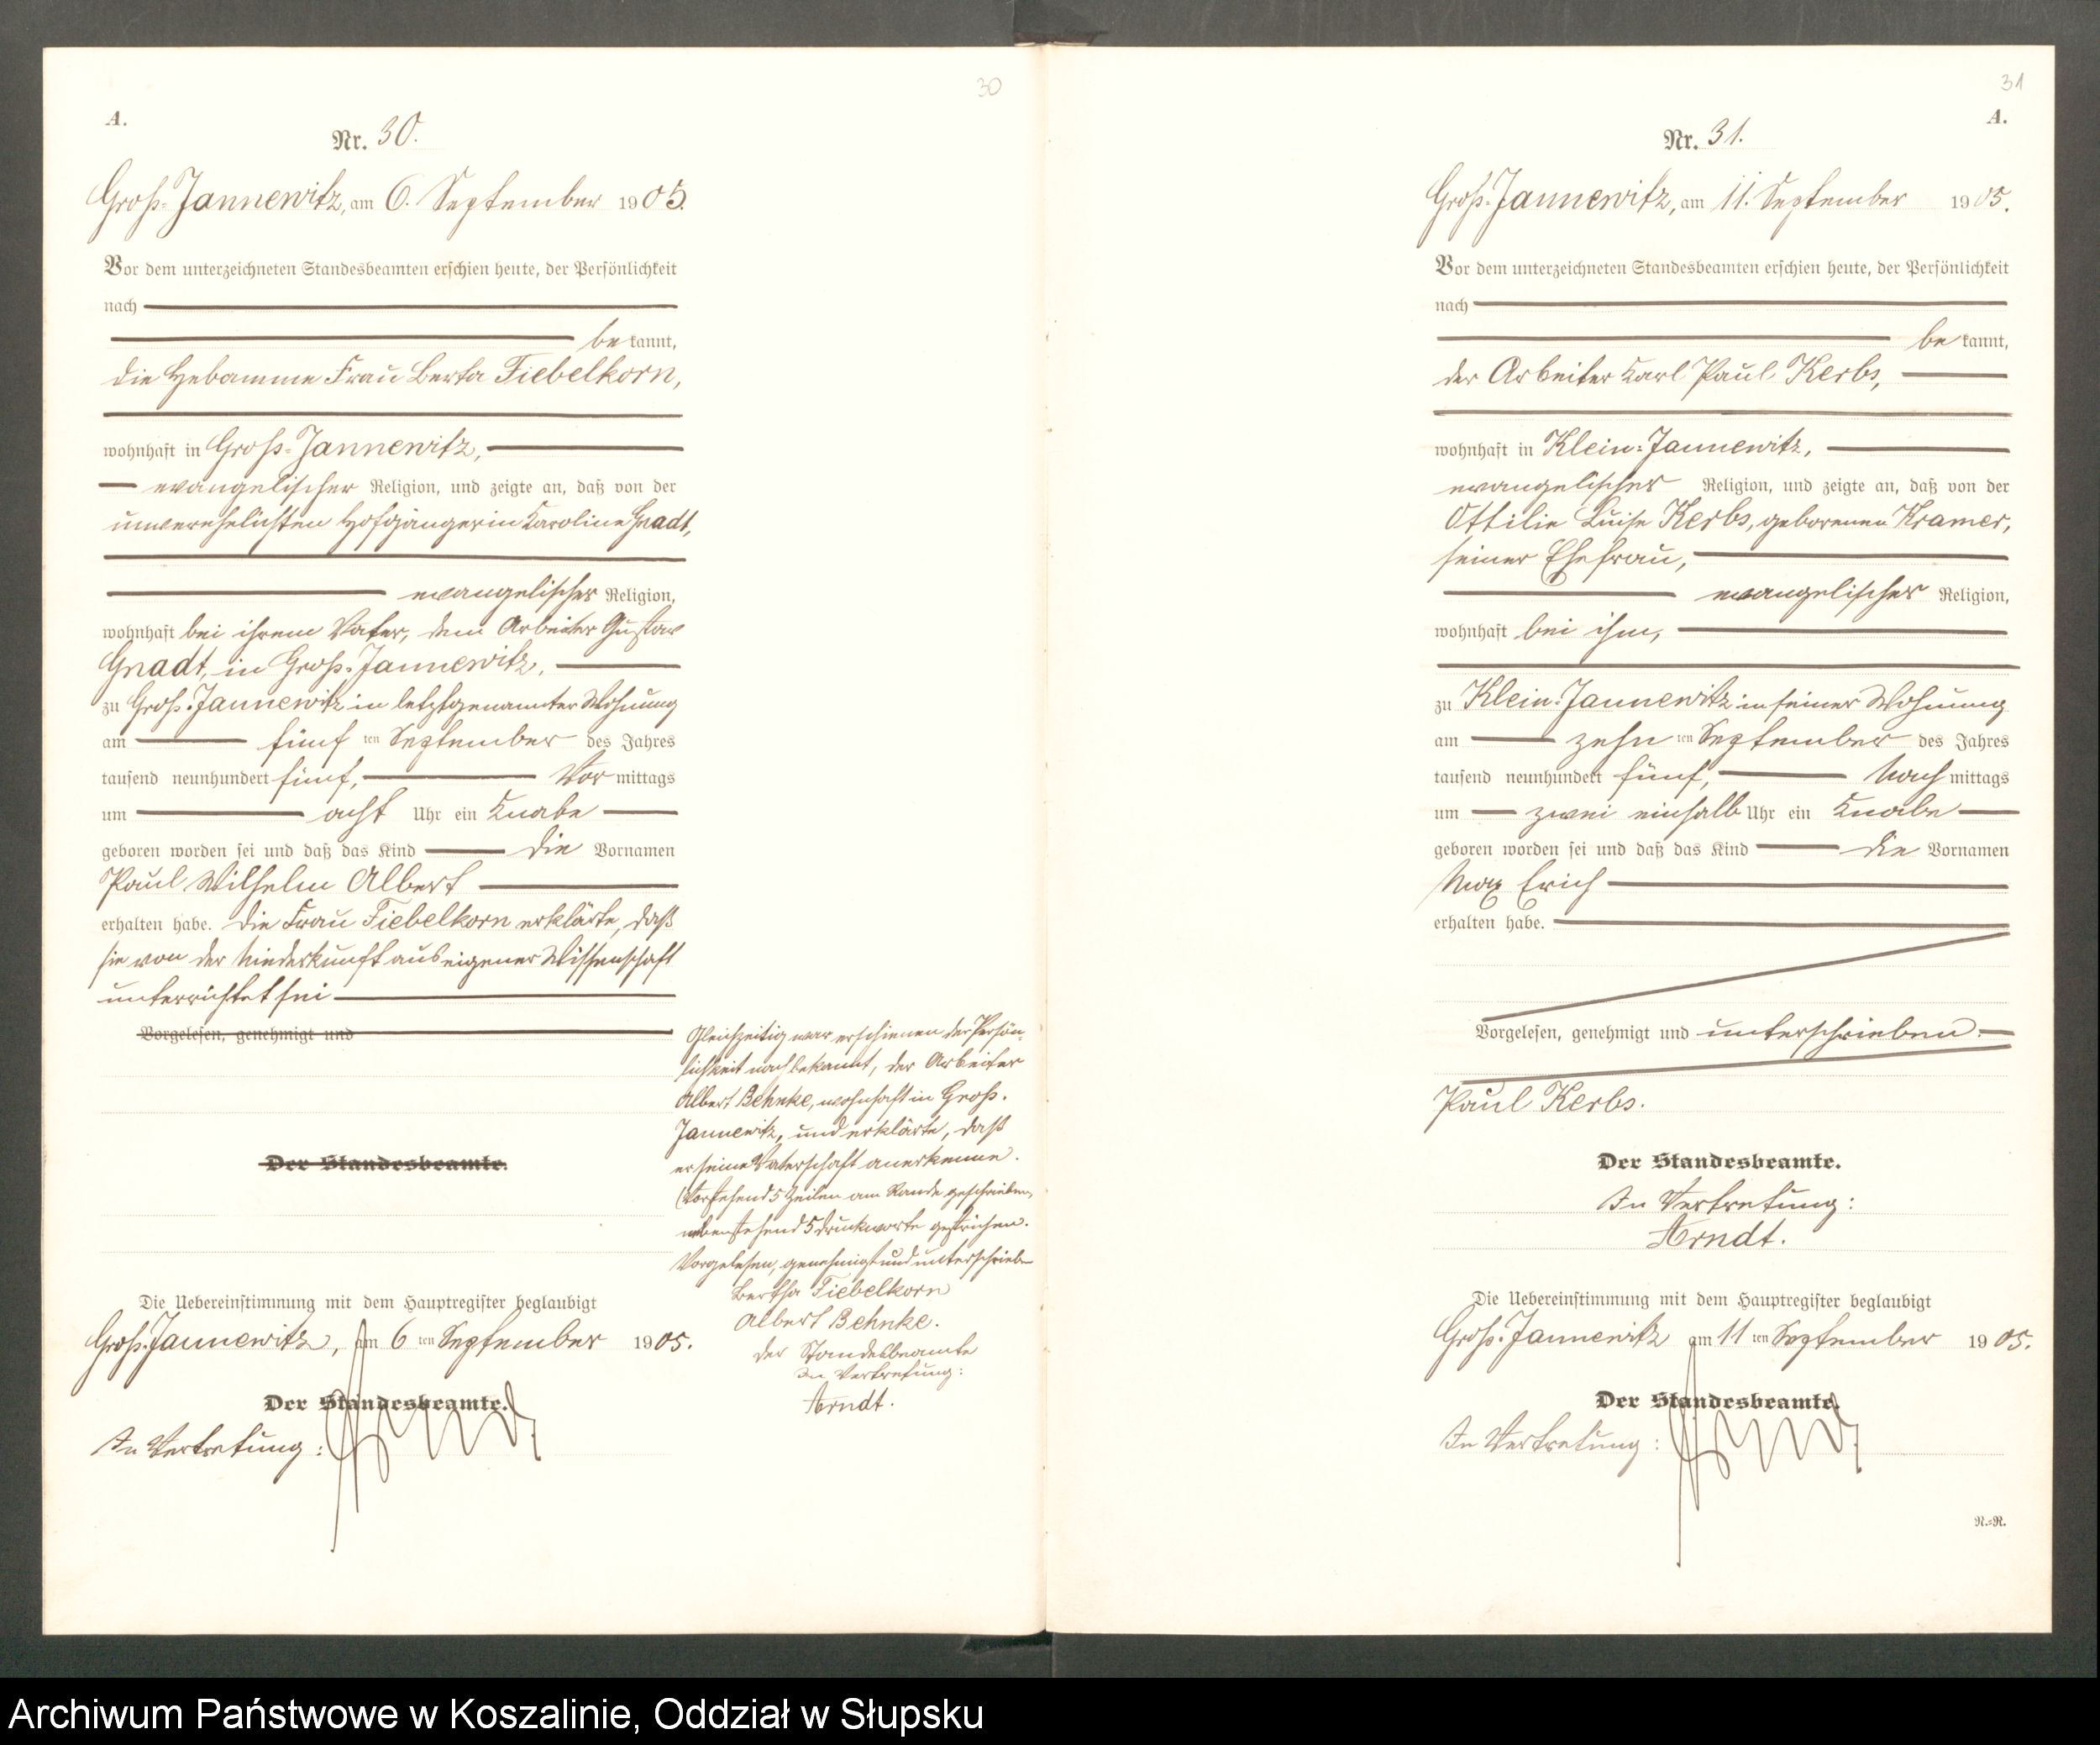 30
A.
Nr. 30.
Groß-Jannewitz, am 6. September 1905.
Vor dem unterzeichneten Standesbeamten erschien heute, der Persönlichkeit
nach
be kannt,
die Hebamme Frau Berta Fiebelkorn,
wohnhaft in Groß-Jannewitz,
evangelischer Religion, und zeigte an, daß von der
unverehelichten Hofgängerin Karoline Gnadt,
evangelischer Religion,
wohnhaft bei ihrem Vater, dem Arbeiter Gustav
Gnadt, in Groß-Jannewitz,
zu Groß-Jannewitz in letztgenannter Wohnung
am fünf ten September des Jahres
tausend neunhundert fünf, Vor mittags
um acht Uhr ein Knabe
geboren worden sei und daß das Kind die Vornamen
Paul Wilhelm Albert
erhalten habe. Die Frau Fiebelkorn erklärte, daß
sie von der Niederkunft aus eigener Wissenschaft
unterrichtet sei
Vorgelesen, genehmigt und
Der Standesbeamte.
Gleichzeitig war erschienen der Persön-
lichkeit nach bekannt, der Arbeiter
Albert Behnke, wohnhaft in Groß-
Jannewitz, und erklärte, daß
er seine Vaterschaft anerkenne.
(Vorstehend 5 Zeilen am Rande geschrieben,
nebenstehend 5 Druckworte gestrichen.
Vorgelesen, genehmigt und unterschrieben
Bertha Fiebelkorn
Albert Behnke.
Der Standesbeamte
In Vertretung:
Arndt.
Die Uebereinstimmung mit dem Hauptregister beglaubigt
Groß-Jannewitz, am 6 ten September 1905.
Der Standesbeamte.
In Vertretung: Arndt
31
A.
Nr. 31.
Groß-Jannewitz, am 11. September 1905.
Vor dem unterzeichneten Standesbeamten erschien heute, der Persönlichkeit
nach
be kannt,
der Arbeiter Karl Paul Kerbs,
wohnhaft in Klein-Jannewitz,
evangelischer Religion, und zeigte an, daß von der
Ottilie Luise Kerbs, geborenen Kramer,
seiner Ehefrau,
evangelischer Religion,
wohnhaft bei ihm,
zu Klein-Jannewitz in seiner Wohnung
am zehn ten September des Jahres
tausend neunhundert fünf, Nach mittags
um zwei einhalb Uhr ein Knabe
geboren worden sei und daß das Kind die Vornamen
Max Erich
erhalten habe.
Vorgelesen, genehmigt und unterschrieben.
Paul Kerbs.
Der Standesbeamte.
In Vertretung:
Arndt.
Die Uebereinstimmung mit dem Hauptregister beglaubigt
Groß-Jannewitz am 11 ten September 1905.
Der Standesbeamte.
In Vertretung: Arndt
N.=R.
Archiwum Państwowe w Koszalinie, Oddział w Słupsku